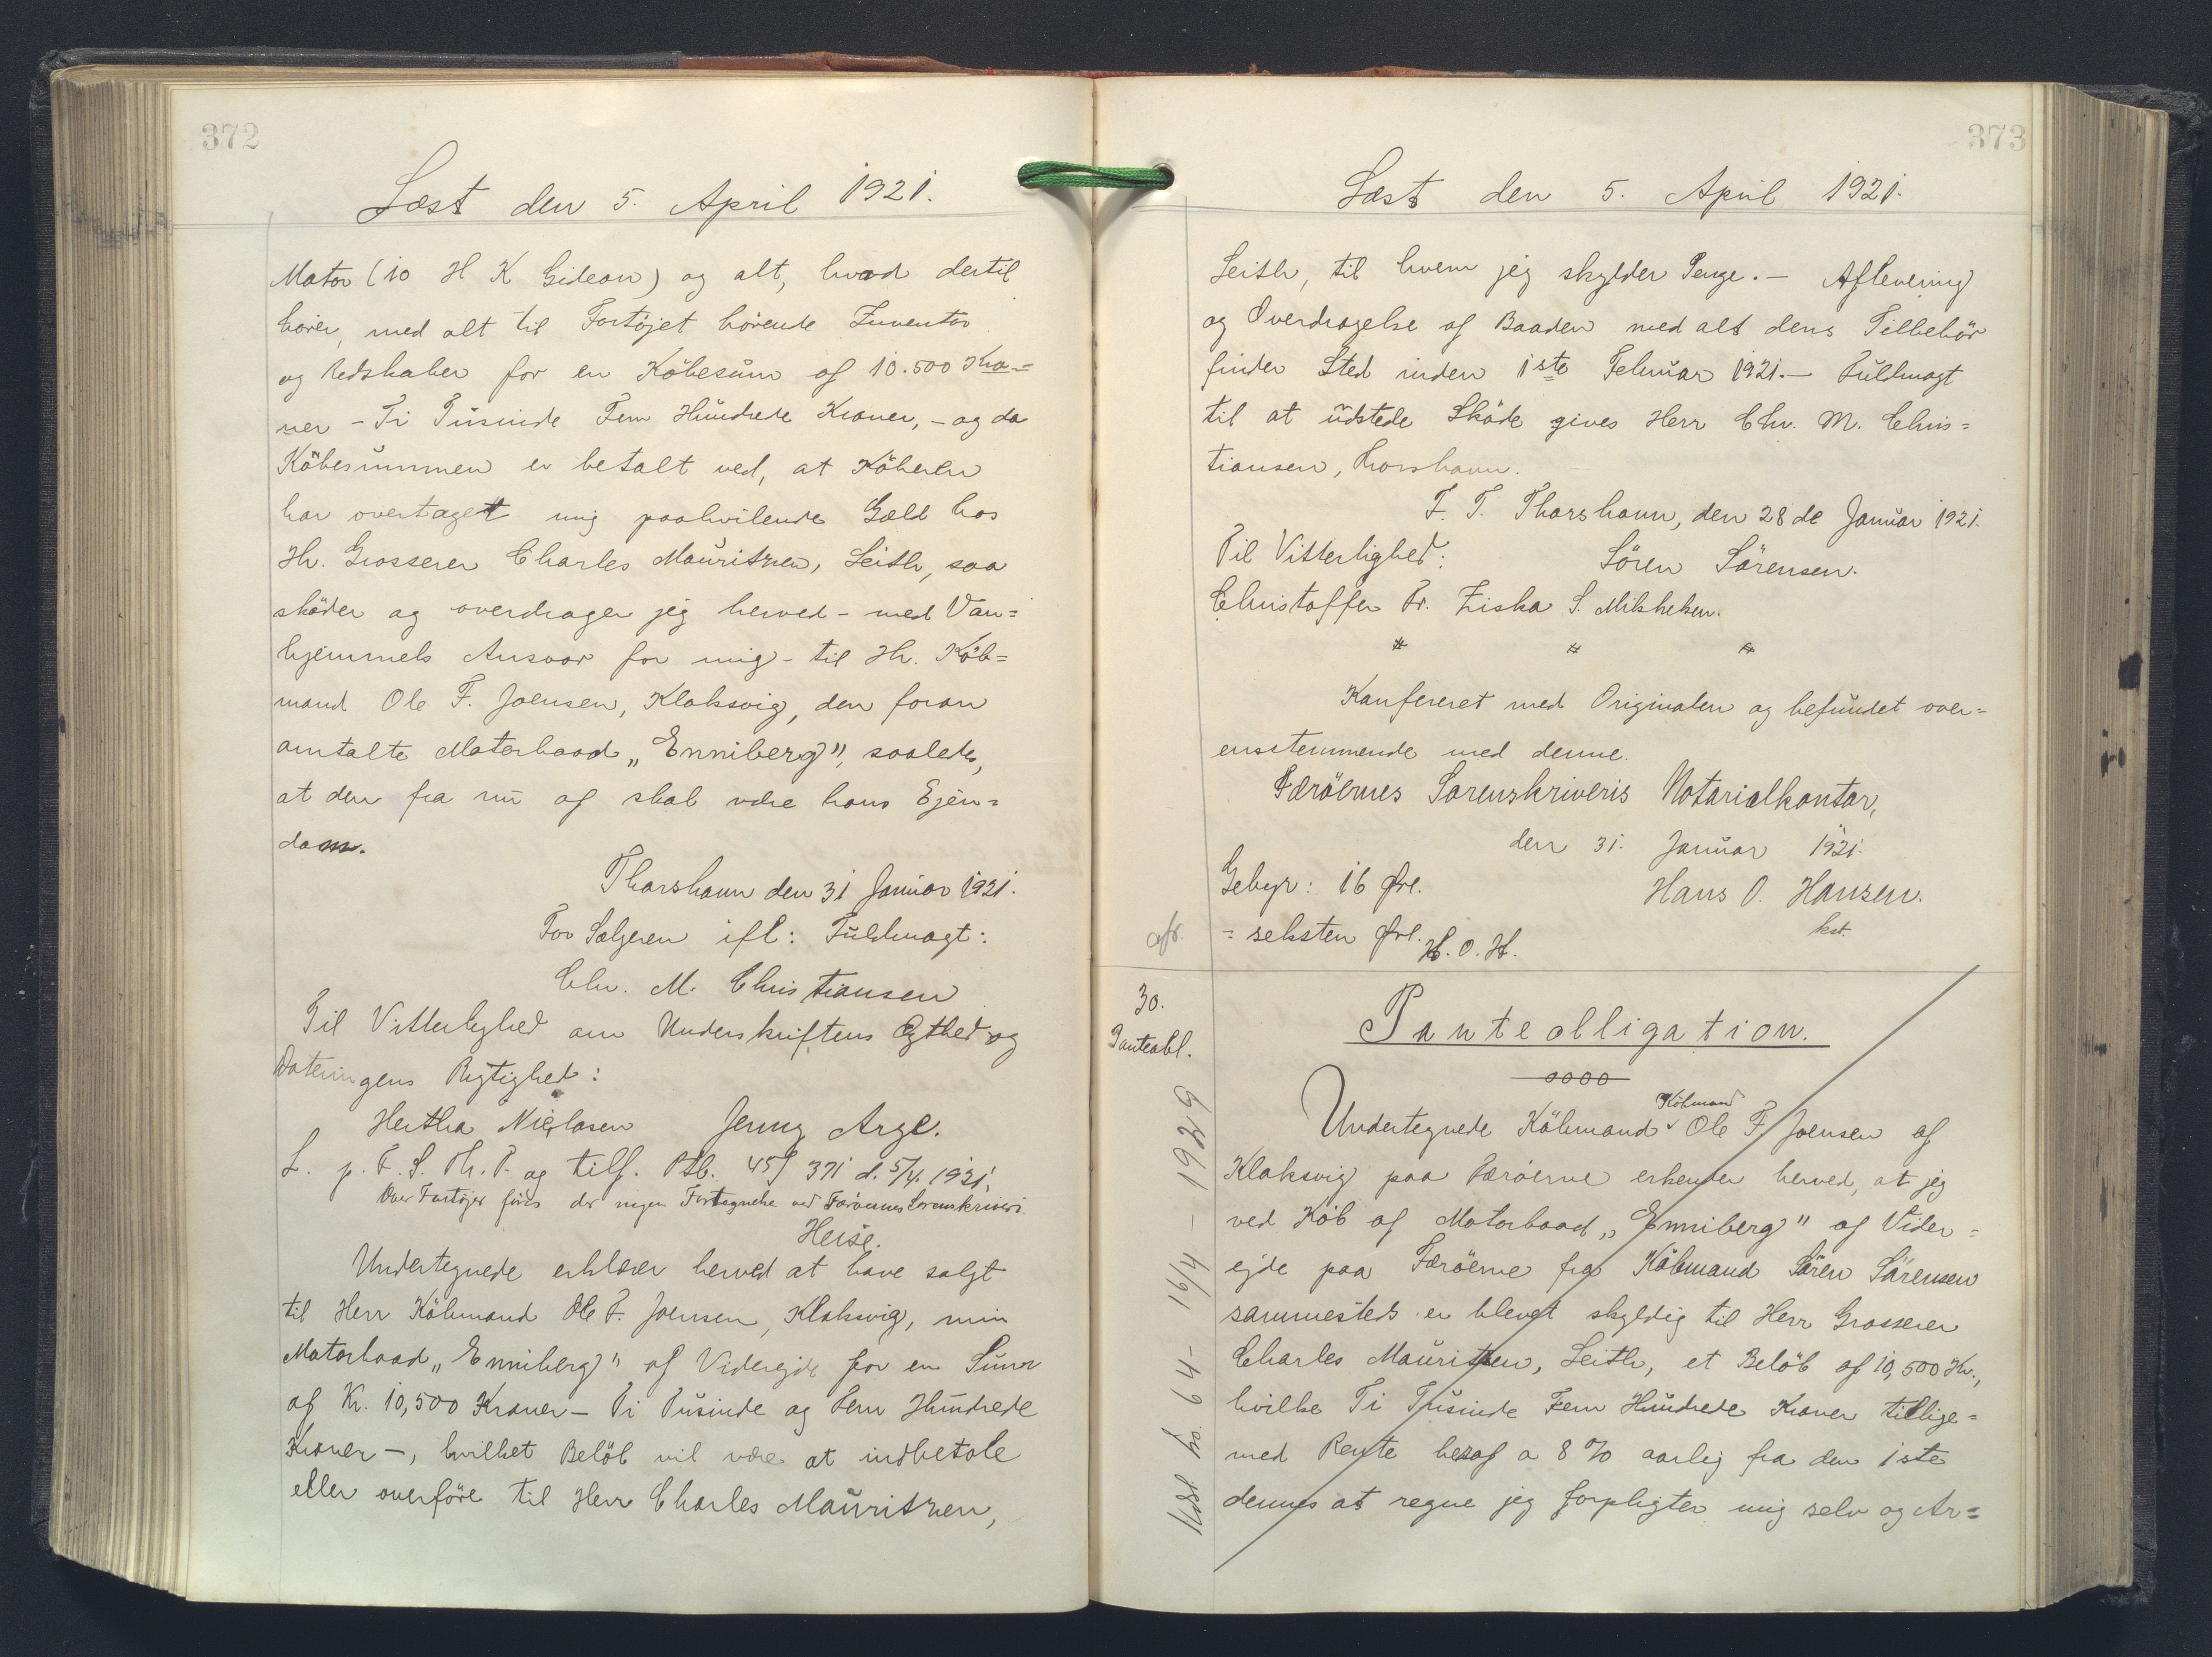 372
Læst den 5. April 1921.
Motor (10 H K Gideon) og alt, hvad dertil
hører, med alt til Fartøjet hørende Inventar
og Redskaber for en Købesum af 10.500 Kro=
ner - Ti Tusinde Fem Hundrede Kroner, - og da
Købesummen er betalt ved, at Køberen
har overtaget mig paahvilende Gæld hos
Hr. Grosserer Charles Mauritzen, Leith, saa
skøder og overdrager jeg herved - med Van=
hjemmels Ansvar for mig - til Hr. Køb=
mand Ole F. Joensen, Klaksvig, den foran
omtalte Motorbaad „Enniberg", saaledes,
at den fra nu af skal være hans Ejen=
dom.
Thorshavn den 31 Januar 1921.
For Sælgeren ifl: Fuldmagt:
Chr. M. Christiansen
Til Vitterlighed om Underskriftens Ægthed og
Dateringens Rigtighed:
Hertha Niclasen Jenny Arge.
L. p. F. S. Th. P. og tilf. Ptb. 45/371 d. 5/4. 1921.
Over Fartøjer føres der ingen Fortegnelse ved Færøernes Sorenskriveri.
Heise.
Undertegnede erklærer herved at have solgt
til Herr Købmand Ole F. Joensen, Klaksvig, min
Motorbaad „Enniberg" af Viderejde for en Sum
af Kr. 10,500 Kroner - Ti Tusinde og Fem Hundrede
Kroner -, hvilket Beløb vil være at indbetale
eller overføre til Herr Charles Mauritzen,
373
Læst den 5. April 1921.
Leith, til hvem jeg skylder Penge. - Aflevering
og Overdragelse af Baaden med alt dens Tilbehør
finder Sted inden 1ste Februar 1921. - Fuldmagt
til at udstede Skøde gives Herr Chr. M. Chris=
tiansen, Thorshavn.
F. T. Thorshavn, den 28de Januar 1921.
Til Vitterlighed: Sören Sörensen.
Christoffer Fr. Ziska S. Mikkelsen.
" " "
Konfereret med Originalen og befundet over=
ensstemmende med denne.
Færöernes Sorenskriveris Notarialkontor,
den 31. Januar 1921.
Gebyr: 16 Øre. Hans O. Hansen.
afr. = seksten Øre. H. O. H. kst.
30. Panteobligation.
Panteobl.
0000
Købmand
Undertegnede Købmand Ole F. Joensen af
Klaksvig paa Færøerne erkender herved, at jeg
ved Køb af Motorbaad „Enniberg" af Vider=
ejde paa Færøerne fra Købmand Sören Sörensen
sammesteds er blevet skyldig til Herr Grosserer
Charles Mauritzen, Leith, et Beløb af 10,500 Kr.,
hvilke Ti Tusinde Fem Hundrede Kroner tillige=
med Rente heraf a 8 % aarlig fra den 1ste
dennes at regne jeg forpligter mig selv og Ar=
Udsl. No. 64 - 16/4 - 1929